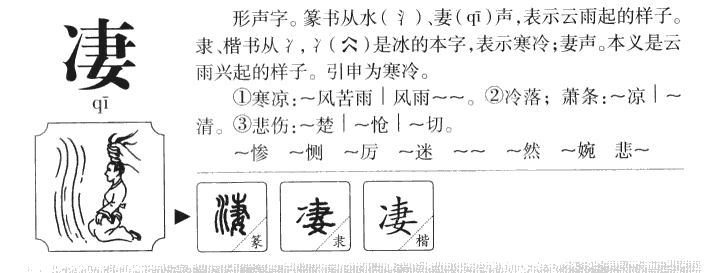 凄
qī
形声字。篆书从水(氵)、妻(qī)声,表示云雨起的样子。
隶、楷书从冫,冫(仌)是冰的本字,表示寒冷;妻声。本义是云
雨兴起的样子。引申为寒冷。
①寒凉:~风苦雨|风雨~~。②冷落;萧条:~凉|~
清。③悲伤:~楚|~怆|~切。
~惨 ~恻 ~厉 ~迷 ~~ ~然 ~婉 悲~
凄 篆 凄 隶 凄 楷